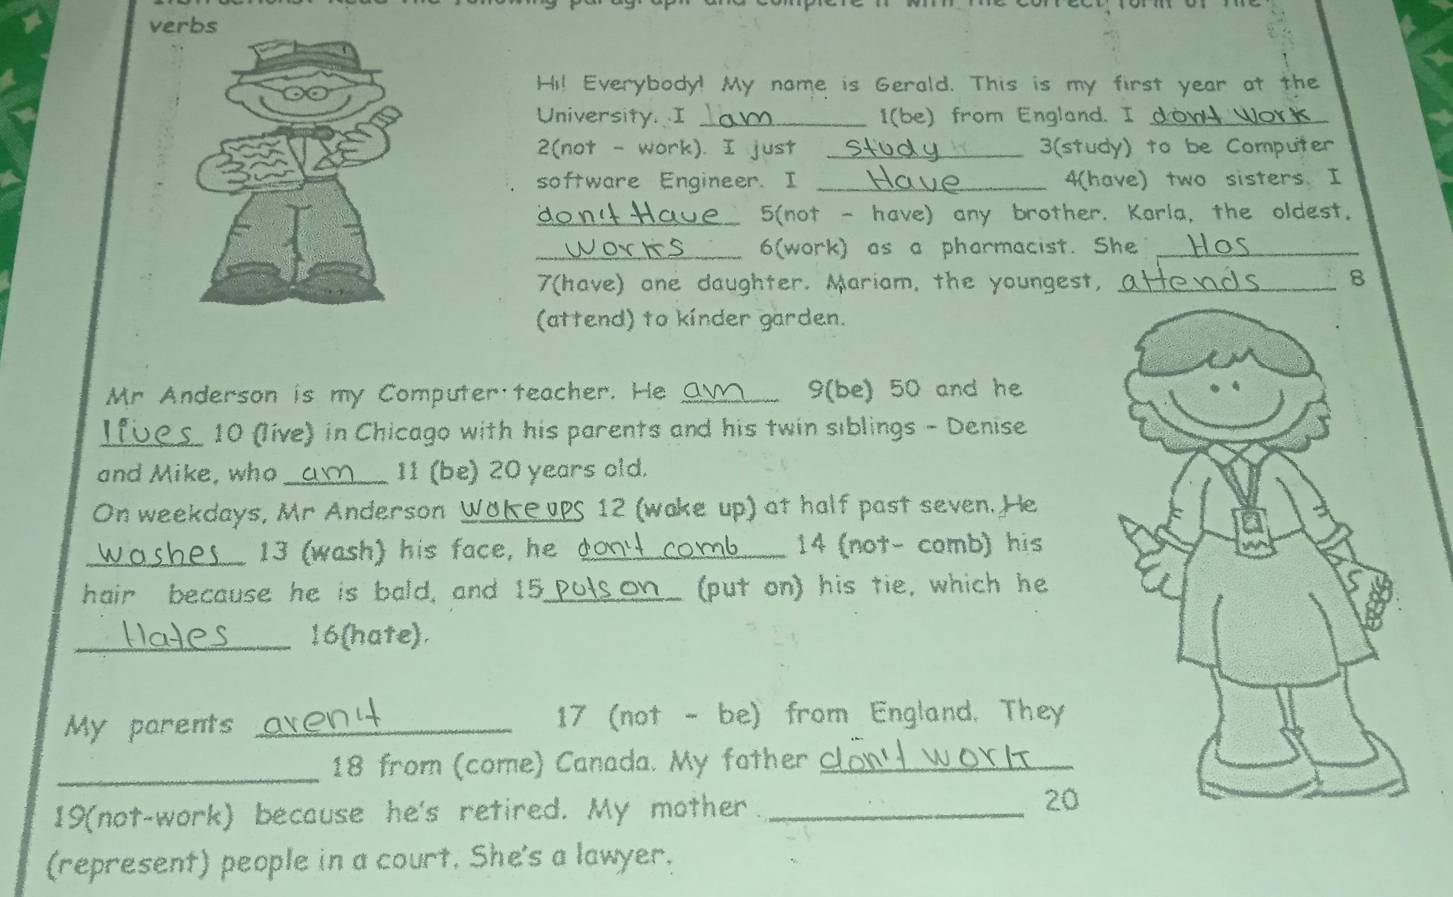 verbs
Hi! Everybody! My name is Gerald. This is my first year at the
University. I am 1(be) from England. I don't work
2(not - work). I just study 3(study) to be Computer
software Engineer. I Have 4(have) two sisters. I
don't Have 5(not - have) any brother. Karla, the oldest,
works 6(work) as a pharmacist. She Has
7(have) one daughter. Mariam, the youngest, attends 8
(attend) to kinder garden.
Mr Anderson is my Computer teacher. He am 9(be) 50 and he
lives 10 (live) in Chicago with his parents and his twin siblings - Denise
and Mike, who am 11 (be) 20 years old.
On weekdays, Mr Anderson wake ups 12 (wake up) at half past seven. He
washes 13 (wash) his face, he don't comb 14 (not- comb) his
hair because he is bald, and 15 puts on (put on) his tie, which he
Hates 16(hate).
My parents aren't 17 (not - be) from England. They
18 from (come) Canada. My father don't work
19(not-work) because he's retired. My mother 20
(represent) people in a court. She's a lawyer.